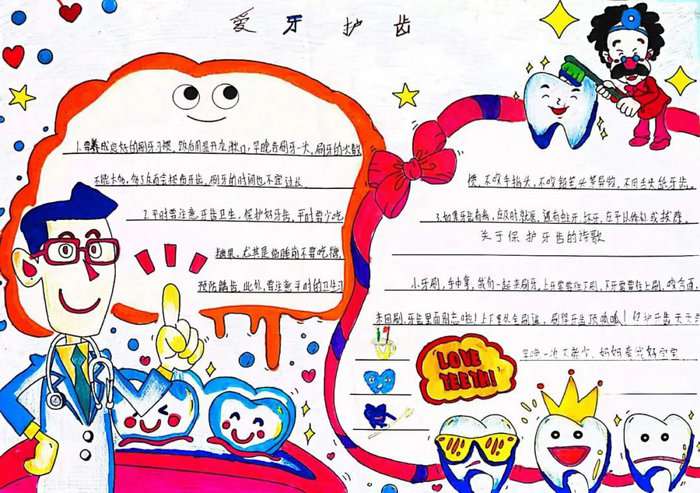 爱牙护齿
1.要养成良好的刷牙习惯，饭后用温开水漱口，早晚各刷牙一次，刷牙的次数
不能太少，
刷牙的时间也不宜过长
2.平时要注意牙齿卫生，保护好牙齿，平时要少吃
糖果，尤其是临睡前不要吃糖，
预防龋齿，此外，要注意平时的卫生习
惯，不吸手指头，不咬铅笔头等异物，不用舌头舔牙齿。
3.如果牙齿有病，应及时就医，
关于保护牙齿的诗歌
小牙刷，手中拿，我们一起来刷牙。上牙要要往下刷，下牙要要往上刷，咬合面，
来回刷，牙齿里面别忘啦！上下里外全刷遍，刷得牙齿顶呱呱！保护牙齿天天
妈妈夸我好宝宝
LOVE
TEETH!